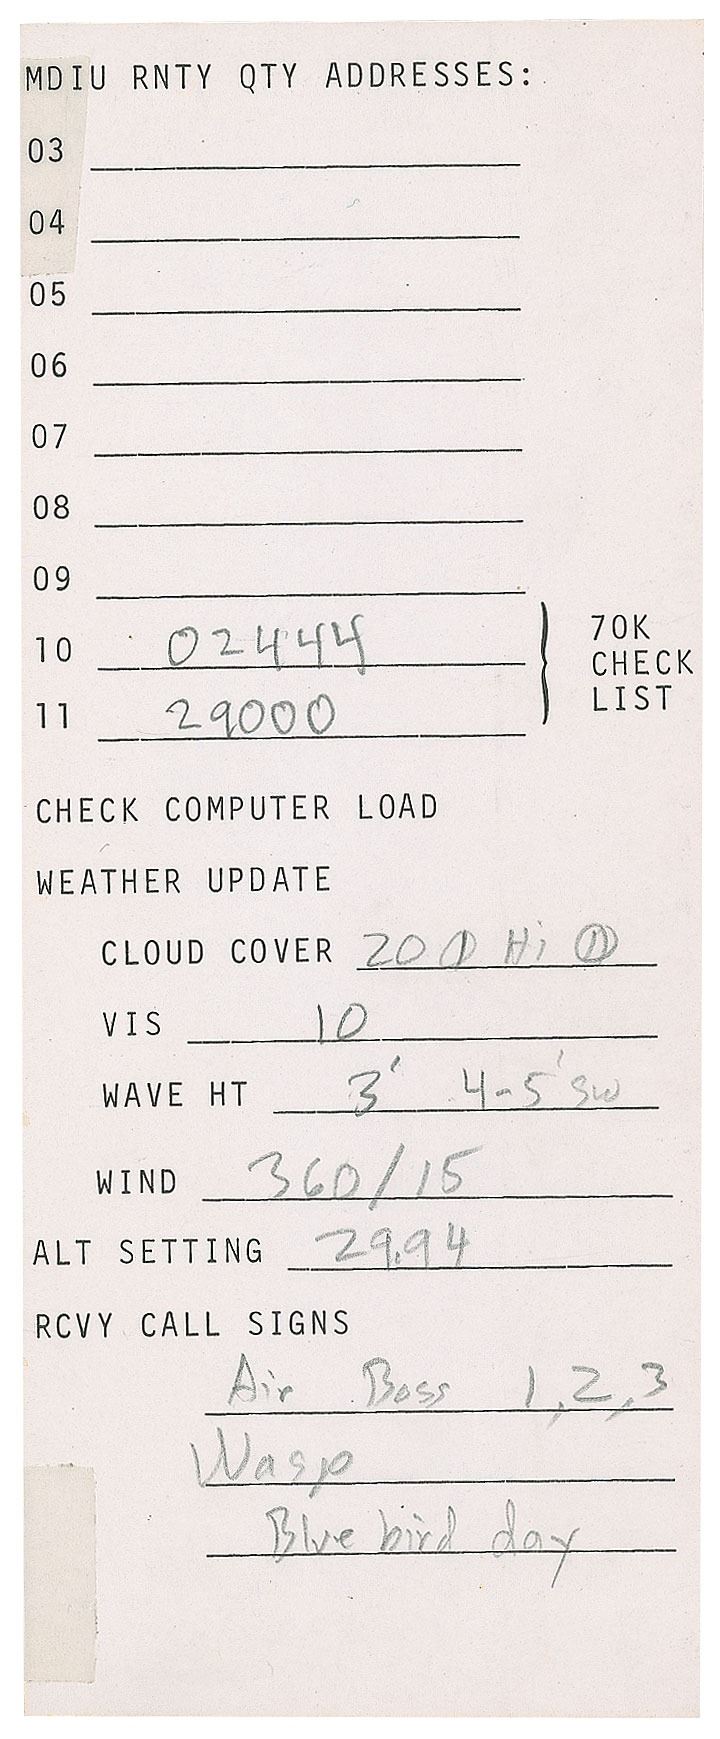 MDIU RNTY QTY ADDRESSES:
03
04
05
06
07
08
09
10 02444
11 29000
70K
CHECK
LIST
CHECK COMPUTER LOAD
WEATHER UPDATE
CLOUD COVER 20 Hi
VIS 10
WAVE HT 3' 4-5' sw
WIND 360/15
ALT SETTING 29.94
RCVY CALL SIGNS
Air Boss 1,2,3
Wasp
Blue bird day